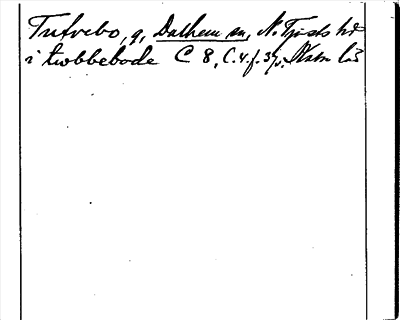 Tufvebo, g, Dalhem sn, N. Tjusts hd
i twbbebode C 8, C. 4. f. 37v.